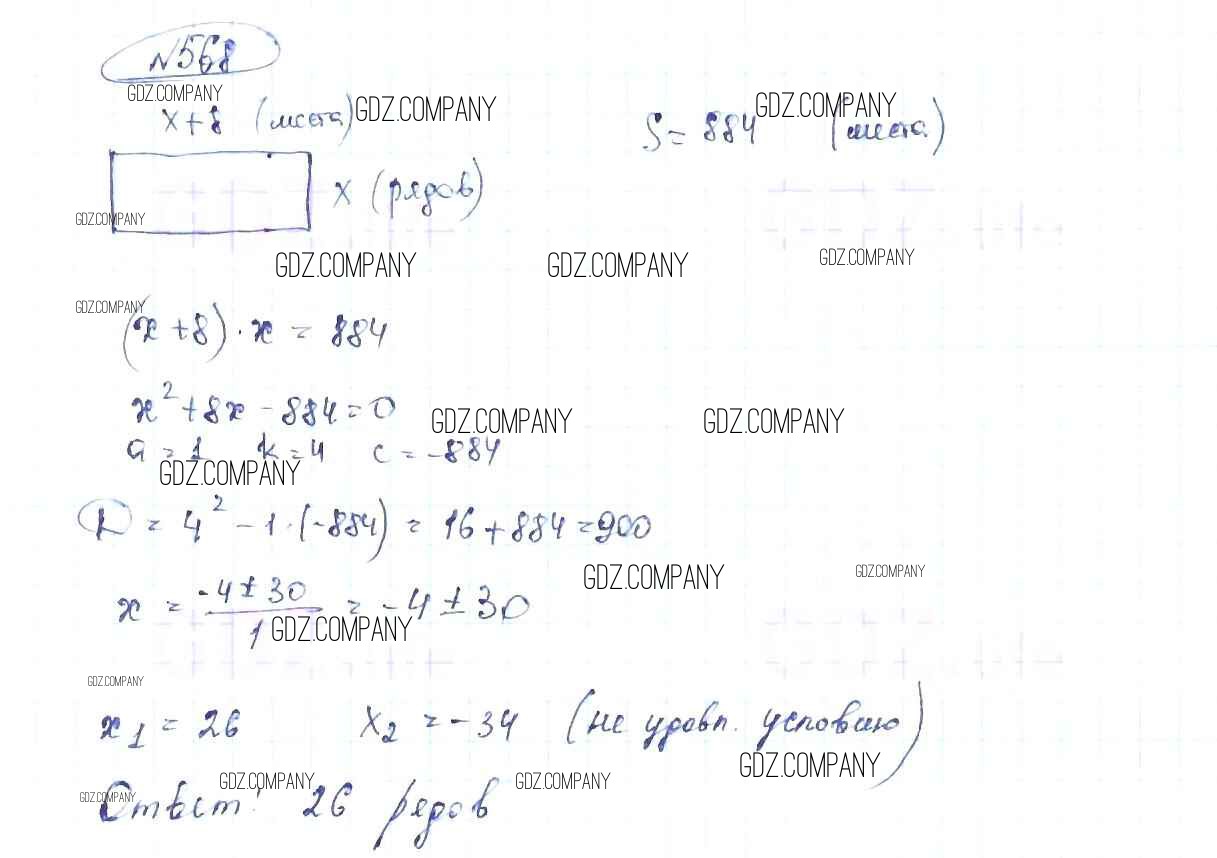 №568
GDZ.COMPANY
x+8 (места) GDZ.COMPANY GDZ.COMPANY
S = 884 (места)
x (рядов)
GDZ.COMPANY
GDZ.COMPANY GDZ.COMPANY GDZ.COMPANY
GDZ.COMPANY
(x+8)·x = 884
x²+8x-884=0 GDZ.COMPANY GDZ.COMPANY
a=1 k=4 c=-884
GDZ.COMPANY
D = 4² - 1·(-884) = 16+884=900
GDZ.COMPANY GDZ.COMPANY
x = -4±30/1 = -4±30
GDZ.COMPANY
GDZ.COMPANY
x₁ = 26 x₂ = -34 (не удовл. условию)
GDZ.COMPANY
GDZ.COMPANY GDZ.COMPANY
GDZ.COMPANY
Ответ: 26 рядов